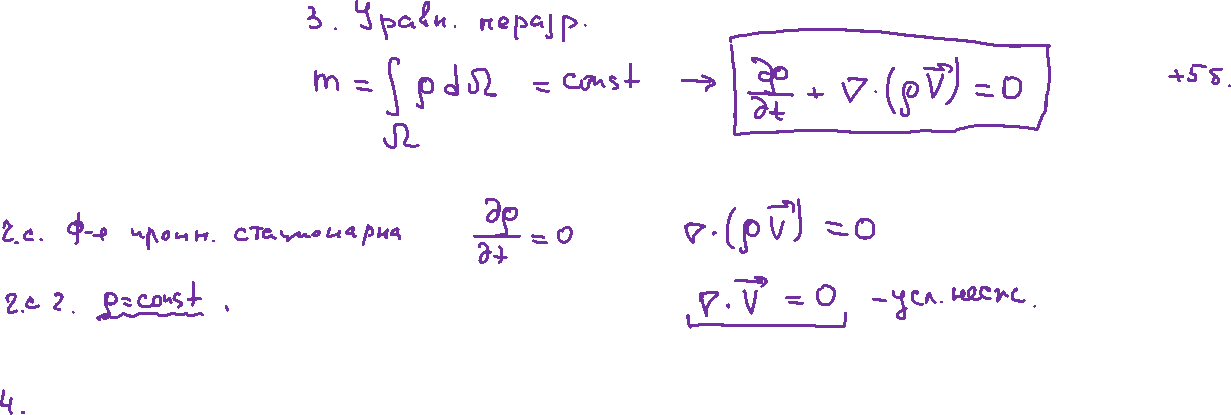 3. Уравн. неразр.
m = ∫_Ω ρ dΩ = const → ∂ρ/∂t + ∇·(ρV⃗) = 0 +5б.
ч.с. Ф-я стационарна ∂ρ/∂t = 0 ∇·(ρV⃗) = 0
ч.с 2. ρ=const. ∇·V⃗ = 0 - усл. несж.
4.